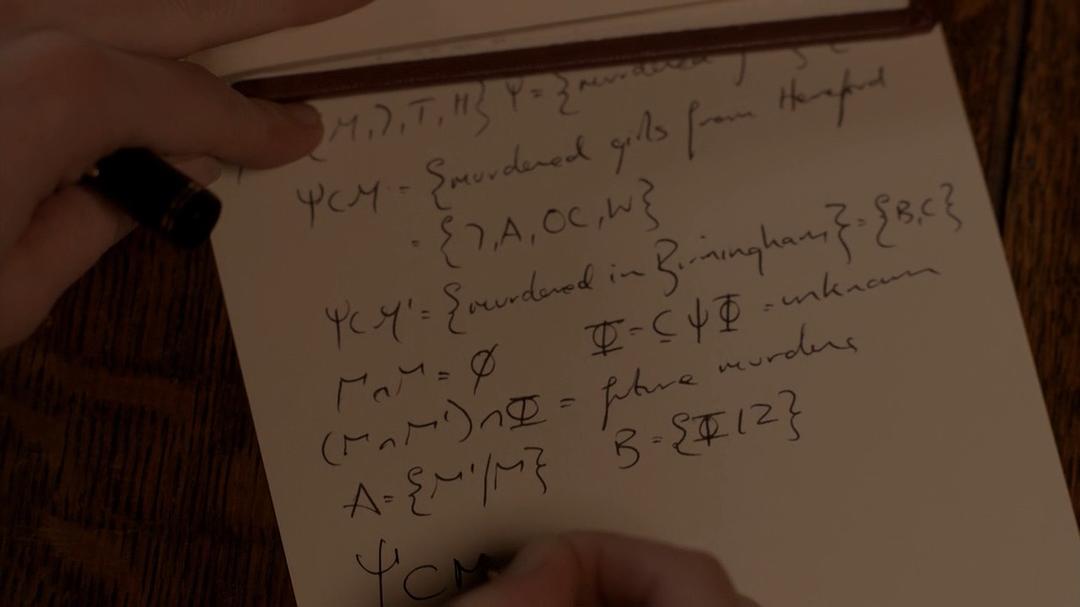 M, J, T, H} Ψ = {murdered
Ψ⊂M = {murdered girls from Hereford
= {J, A, OC, W}
Ψ⊂M' = {murdered in Birmingham} = {B, C}
M∩M' = Ø Φ = ⊆ΨΦ = unknown
(M∩M')∩Φ = future murders
A = {M'/M} B = {Φ/Z}
Ψ⊂M